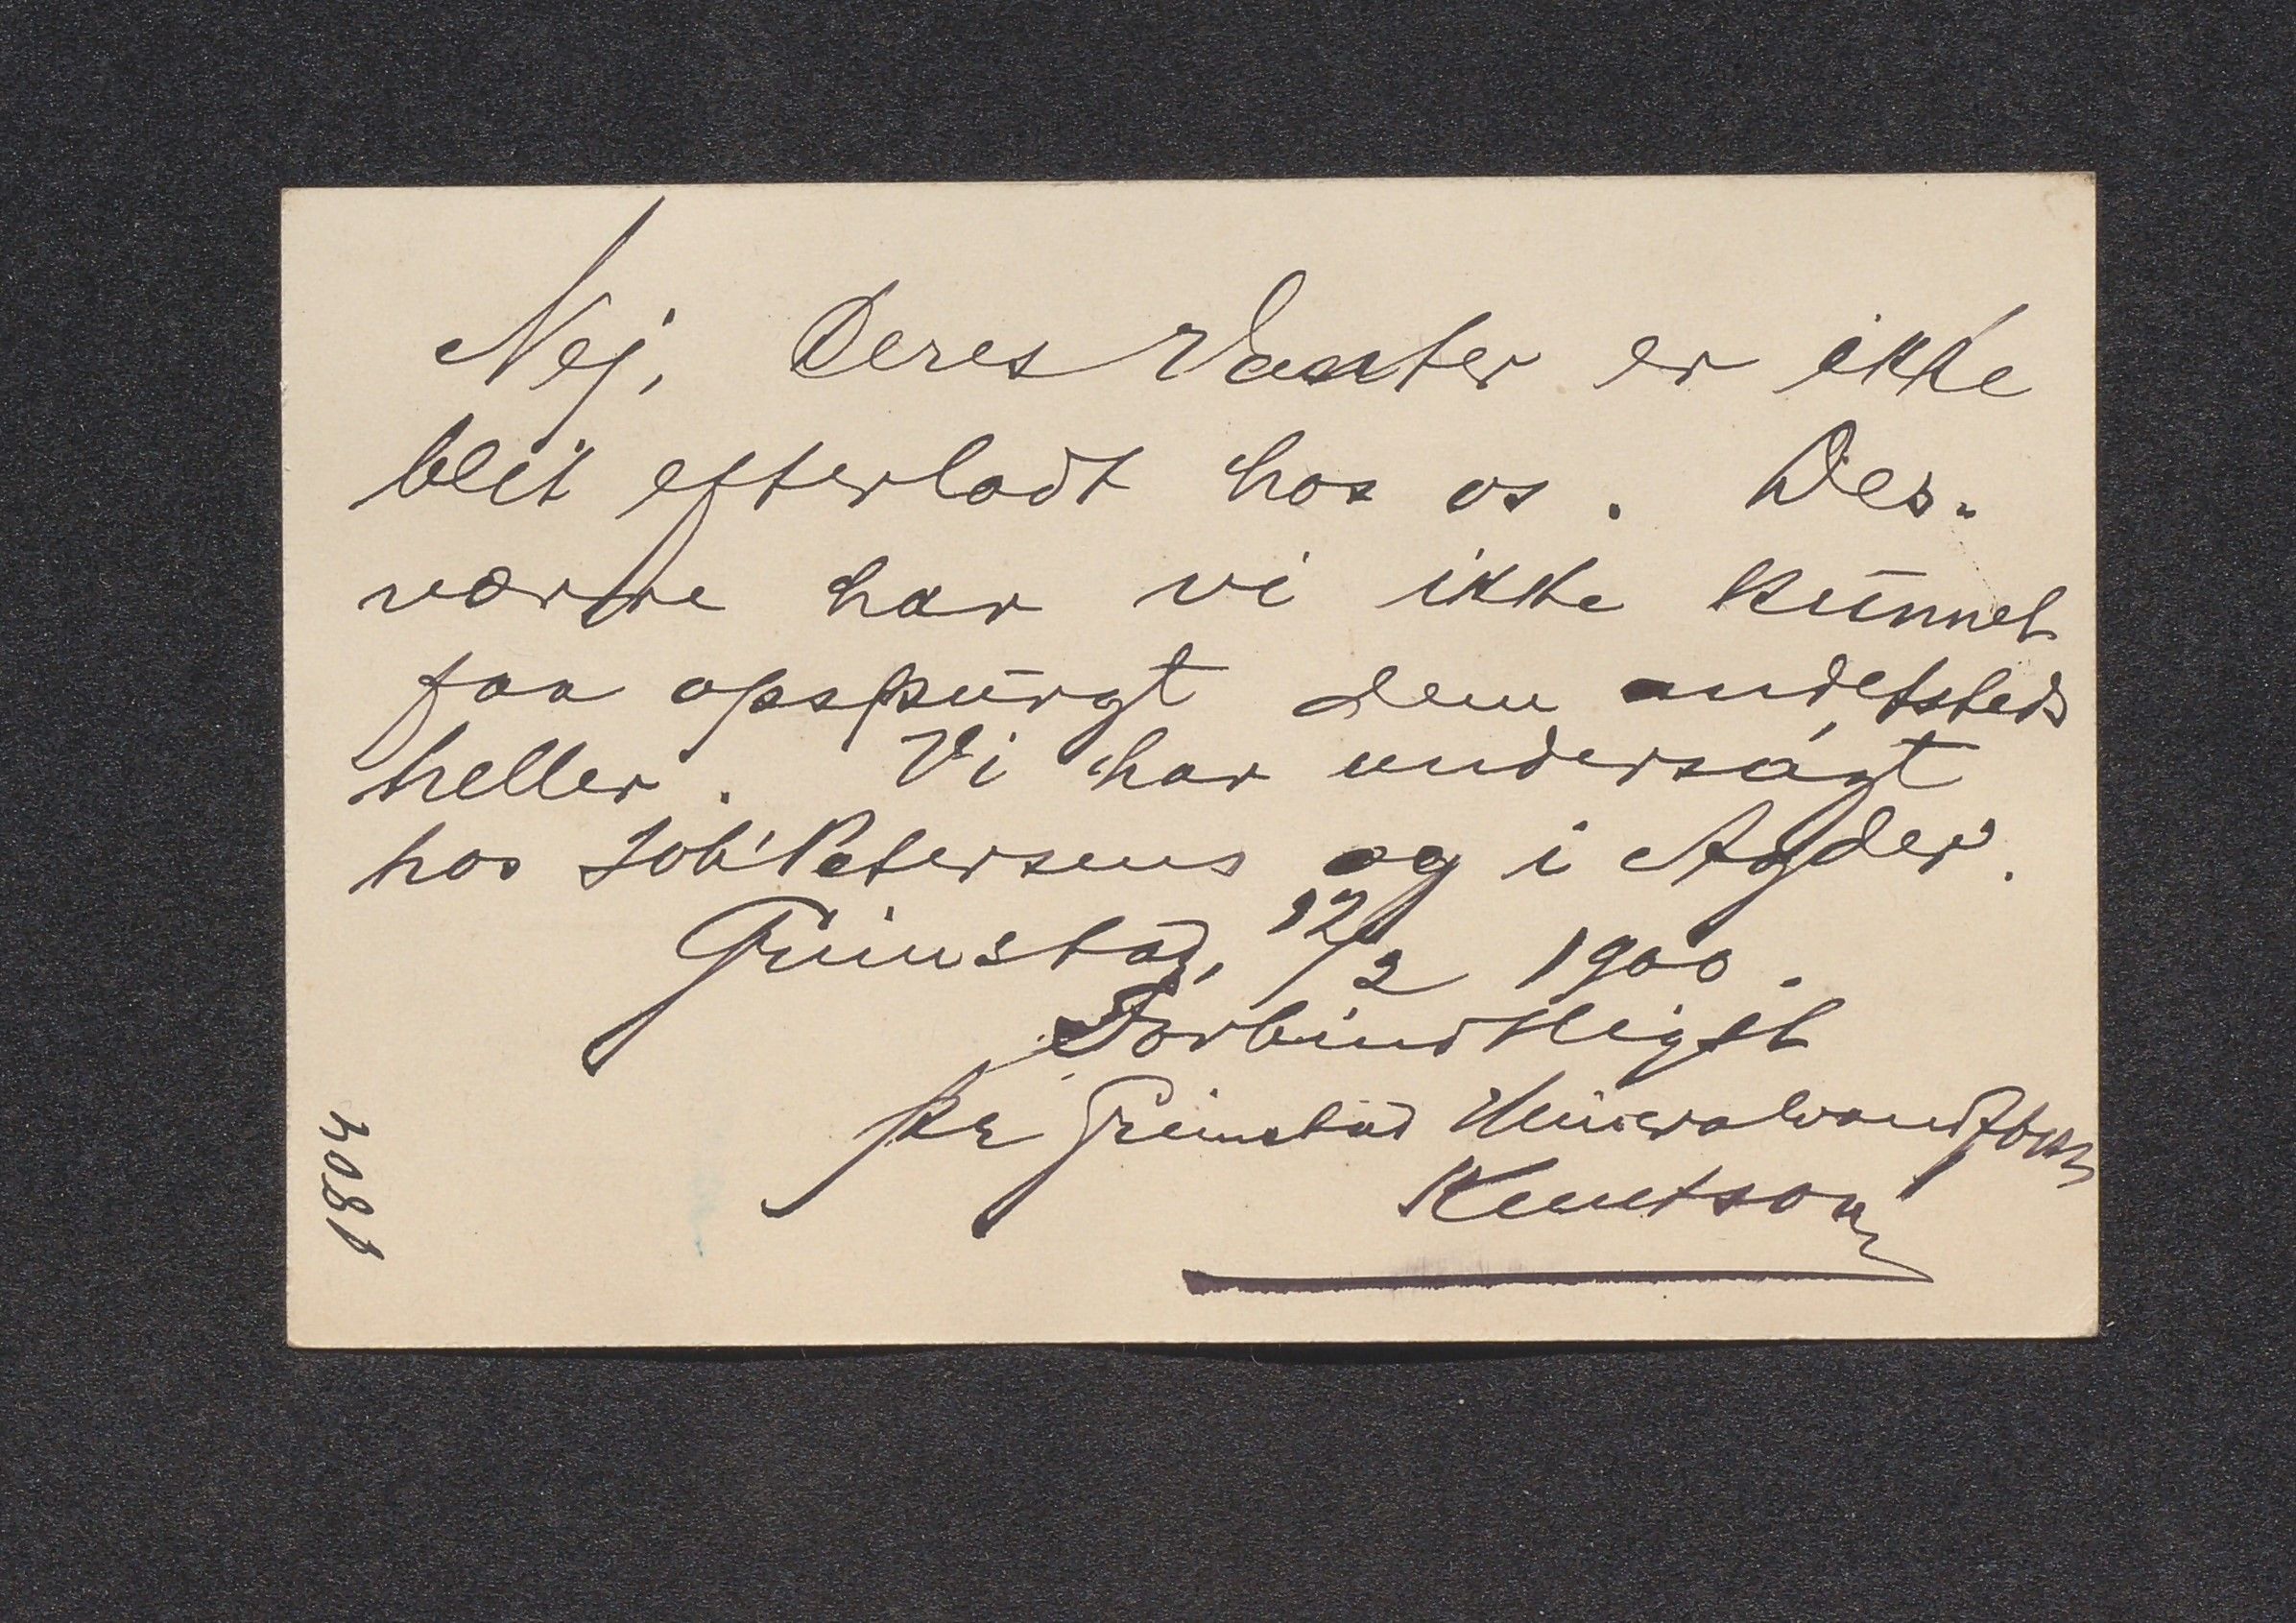 Nej, Deres Vanter er ikke
blit efterladt hos os. Des-
værre har vi ikke kunnet
faa opspurgt dem andetsteds
heller. Vi har undersøgt
hos Joh. Petersens og i Agder.
Grimstad, 12/2 1900.
Forbindtligst
pr Grimstad Mineralvandfbrk
Knutson
1804